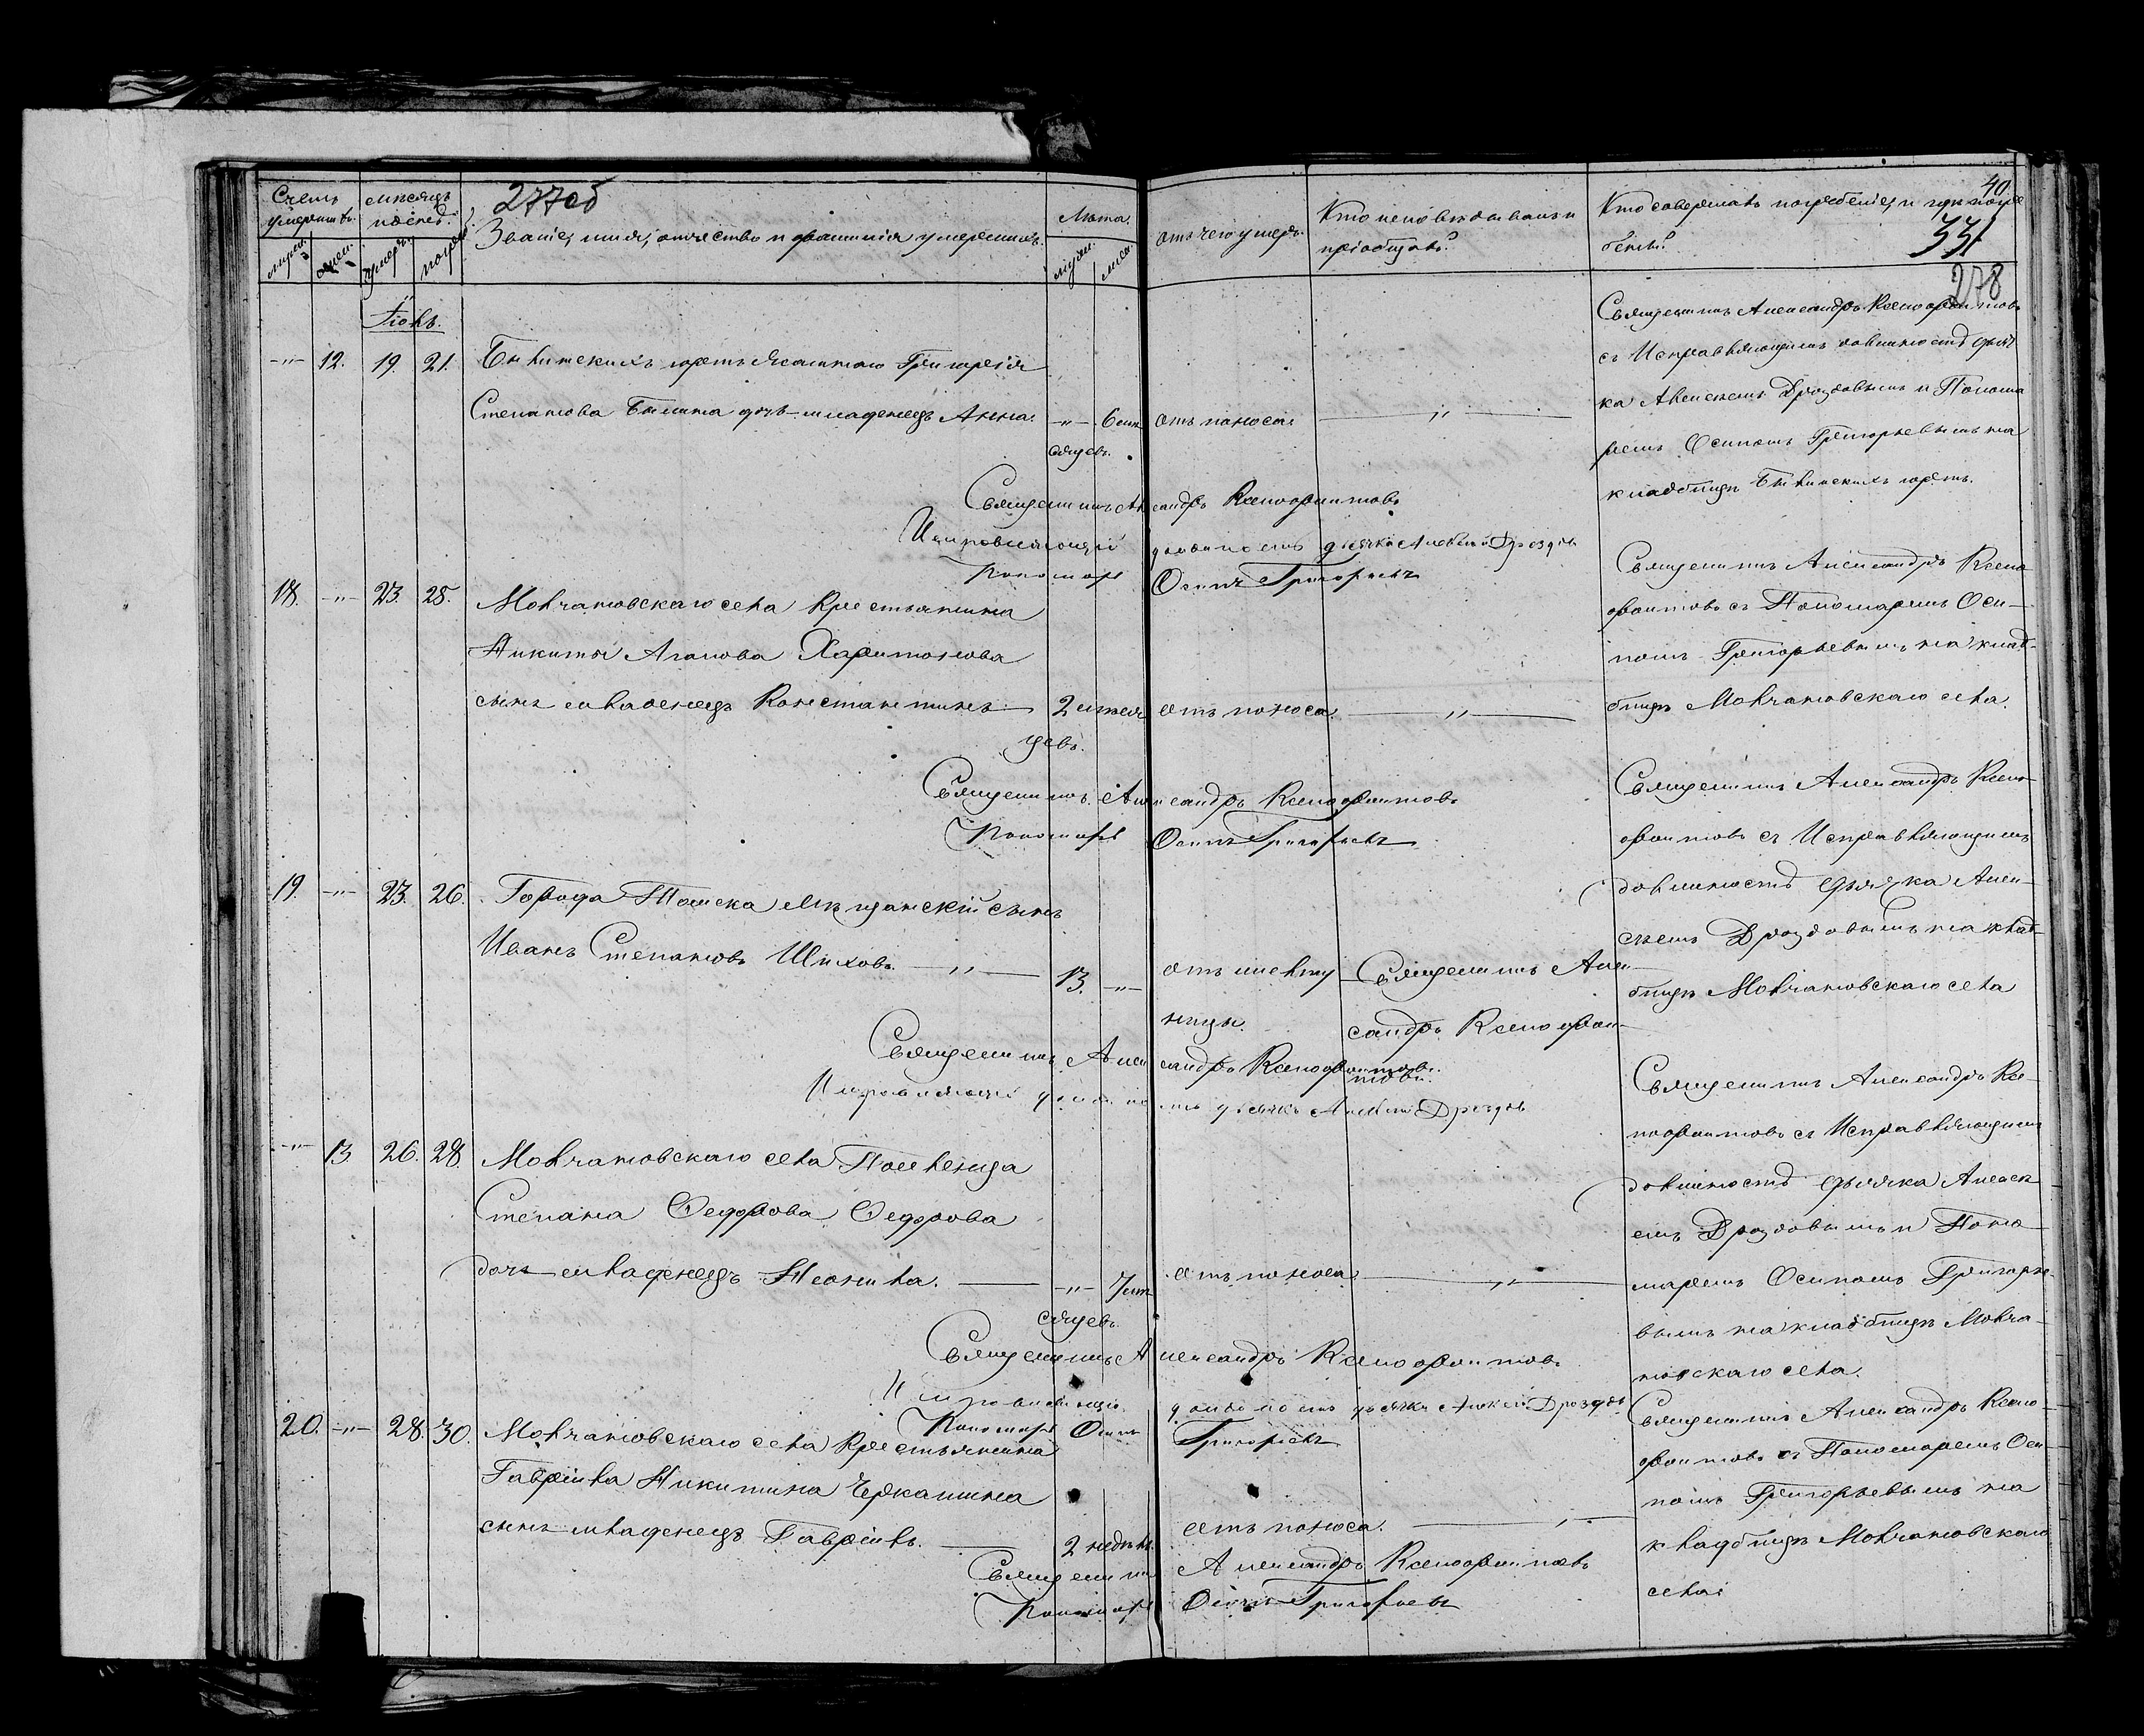 277об
40.
331
278
Счетъ умершихъ.
Мѣсяцъ и день.
Званіе, имя, отчество и фамилія умершихъ.
Лѣта.
Отъ чего умеръ.
Кто исповѣдывалъ и
пріобщалъ?
Кто совершалъ погребеніе, и гдѣ погре
бены?
муж. женс. умеръ. погреб.
муж. жен.
Іюль.
-"- 12. 19. 21.
Степанова дочь младенецъ Анна. -"- 6 мѣ
сяцевъ.
отъ поноса. "
Священникъ Александръ Ксенофонтовъ
съ Исправляющимъ должность дьяч
ка Алексѣемъ Дроздовымъ и Понома
ремъ Осипомъ Григорьевымъ на
кладбищѣ юртъ.
Священникъ Александръ Ксенофонтовъ
Исправляющій должность дьячка Алексѣй Дроздовъ
Пономарь Осипъ Григорьевъ
18. -"- 23. 25.
Молчановскаго села Крестьянина
Никиты Агапова Харитонова
сынъ младенецъ Константинъ 2 мѣся
цевъ.
отъ поноса. "
Священникъ Александръ Ксено
фонтовъ съ Пономаремъ Оси-
помъ Григорьевымъ на клад-
бищѣ Молчановскаго села.
Священникъ Александръ Ксенофонтовъ
Пономарь Осипъ Григорьевъ
19. -"- 23. 26.
Города Томска мѣщанскій сынъ
Иванъ Степановъ Шиховъ. " 13. -"-
отъ
ницы.
Священникъ Алек-
сандръ Ксенофон-
товъ.
Священникъ Александръ Ксено-
фонтовъ съ Исправляющимъ
должность дьячка Алек-
сѣемъ Дроздовымъ на клад-
бищѣ Молчановскаго села
Священникъ Александръ Ксенофонтовъ.
Исправляющій должность дьячка Алексѣй Дроздовъ
-"- 13 26. 28.
Молчановскаго села Поселенца
Степана Федорова Федорова
дочь младенецъ Неонила. -"- 7 мѣ
сяцевъ.
отъ поноса. "
Священникъ Александръ Ксе-
нофонтовъ съ Исправляющимъ
должность дьячка Алексѣ
емъ Дроздовымъ и Поно-
маремъ Осипомъ Григорье-
вымъ на кладбищѣ Молча-
новскаго села.
Священникъ Александръ Ксенофонтовъ
Исправляющій должность дьячка Алексѣй Дроздовъ
Пономарь Осипъ Григорьевъ
20. -"- 28. 30.
Молчановскаго села Крестьянина
Гавріила Никитина Черкашина
сынъ младенецъ Гавріилъ. 2 недѣли.
отъ поноса.
Священникъ Александръ Ксено-
фонтовъ съ Пономаремъ Оси-
помъ Григорьевымъ на
кладбищѣ Молчановскаго
села.
Священникъ Александръ Ксенофонтовъ
Пономарь Осипъ Григорьевъ